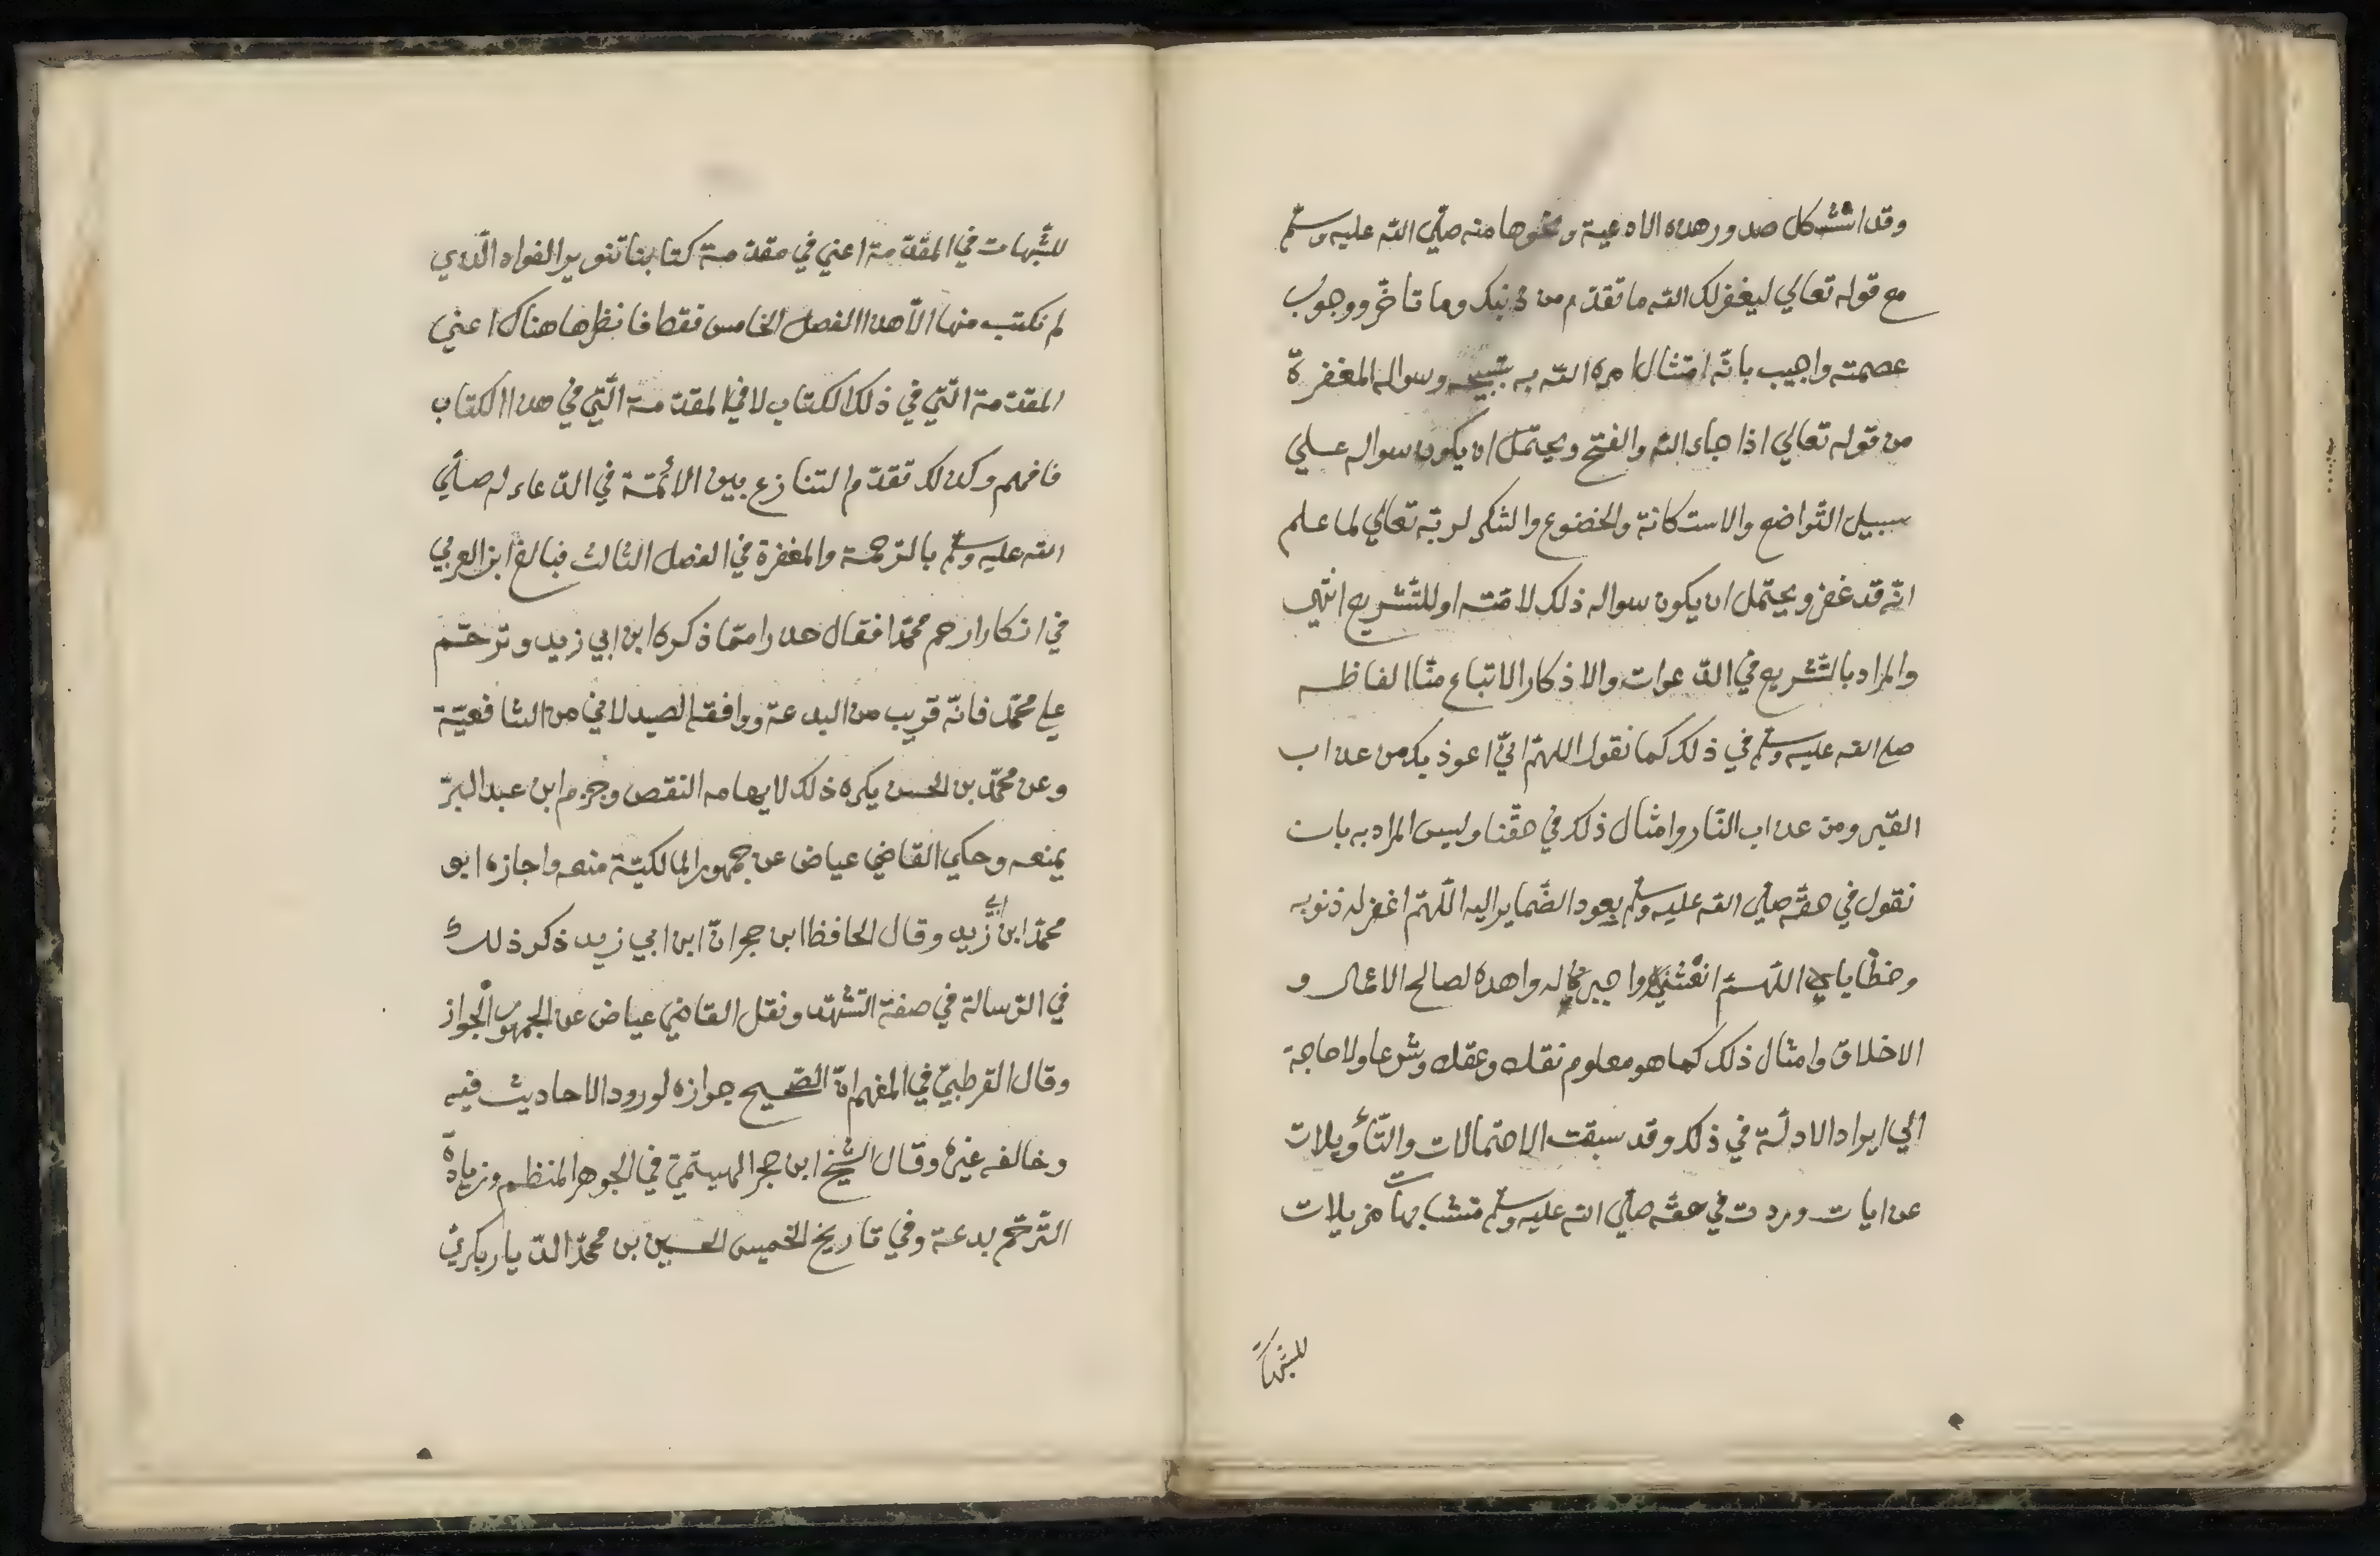 وقد استشكل صدور هذه الادعية ونحوها منه صلي الله عليه وسلم
مع قوله تعالي ليغفر لك الله ما تقدم من ذنبك وما تاخر ووجوب
عصمته واجيب بانه امتثال امره الله به بتسبيحه وسواله المغفرة
من قوله تعالي اذا جاء الله والفتح ويحتمل ان يكون سواله علي
سبيل التواضع والاستكانة والخضوع والشكر لربه تعالي لما علم
انه قد غفر ويحتمل ان يكون سواله ذلك لامته او للتشريع انتهي
والمراد بالتشريع في الدعوات والاذكار الاتباع منا الفاظه
صلي الله عليه وسلم في ذلك كما نقول اللهم اني اعوذ بك من عذاب
القبر ومن عذاب النار وامثال ذلك في حقنا وليس المراد به بان
نقول في حقه صلي الله عليه وسلم بعود الضماير اليه اللهم اغفر له ذنوبه
وخطاياي اللهم انعشني واجبر له واهده لصالح الاعمال و
الاخلاق وامثال ذلك كما هو معلوم نقله وعقله وشرعا ولا حاجة
الي ايراد الادلة في ذلك وقد سبقت الاحتمالات والتأويلات
عن ايات وردت في حقه صلي الله عليه وسلم متشابهات مزيلات
للشبهات
للشبهات في المقدمة اعني في مقدمة كتابنا تنوير الفواد الذي
لم نكتب منها الا هذا الفصل الخامس فقط فانظرها هناك اعني
المقدمة التي في ذلك الكتاب لا في المقدمة التي في هذا الكتاب
فافهم وكذلك تقدم التنازع بين الائمة في الدعاء له صلي
الله عليه وسلم بالترحمة والمغفرة في الفصل الثالث فبالغ ابن العربي
في انكار ارحم محمدا فقال حذرا مما ذكره ابن ابي زيد وترحم
علي محمد فانه قريب من البدعة ووافقه الصيدلاني من الشافعية
وعن محمد بن الحسن يكره ذلك لايهامه النقص وجزم ابن عبد البر
بمنعه وحكي القاضي عياض عن جمهور المالكية منعه واجازه ابو
محمد ابن ابي زيد وقال الحافظ ابن حجر ان ابن ابي زيد ذكر ذلك
في الرسالة في صفة التشهد ونقل القاضي عياض عن الجمهور الجواز
وقال القرطبي في المفهم ان الصحيح جوازه لورود الاحاديث فيه
وخالفه غيره وقال الشيخ ابن حجر الهيتمي في الجوهر المنظم وزيادة
الترحم بدعة وفي تاريخ الخميس الحسين بن محمد الديار بكري